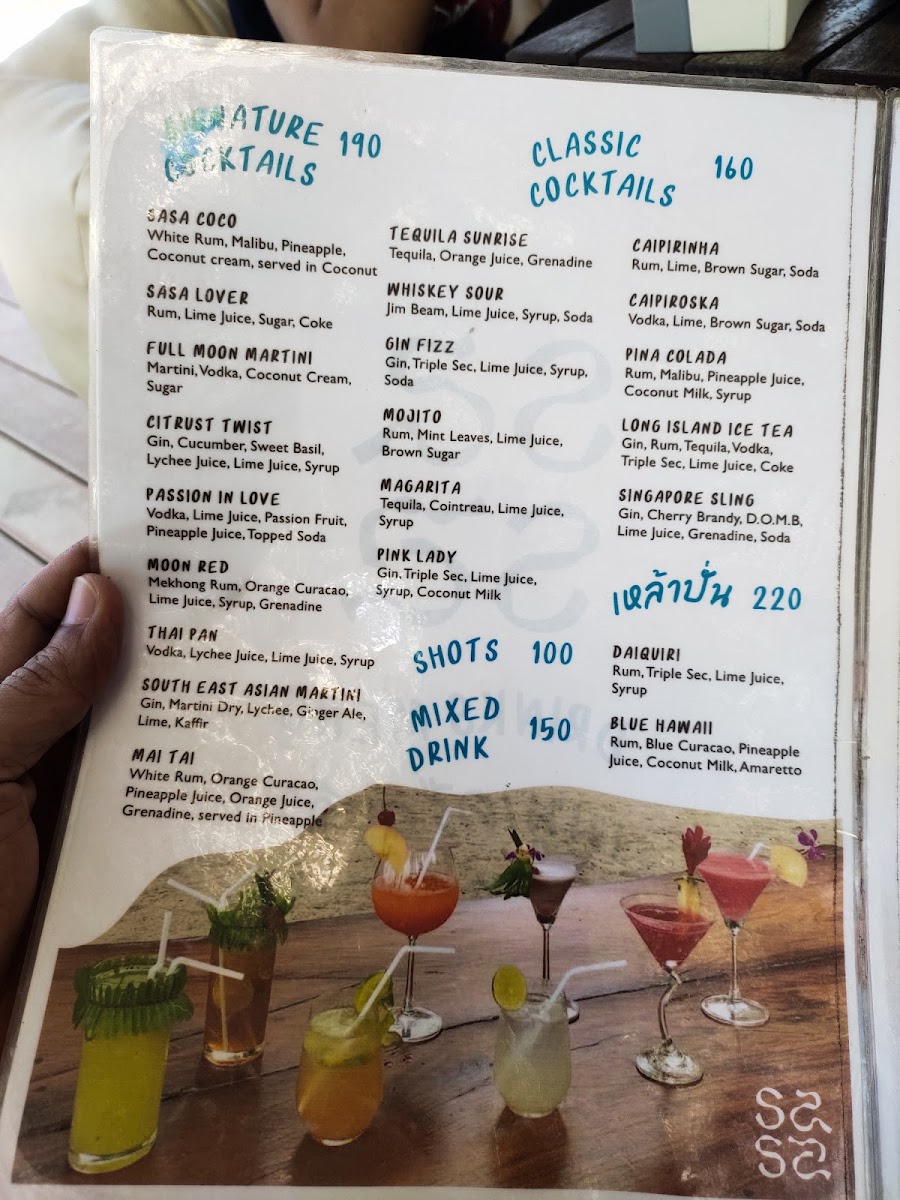 SIGNATURE 190
COCKTAILS
SASA COCO
White Rum, Malibu, Pineapple,
Coconut cream, served in Coconut
SASA LOVER
Rum, Lime Juice, Sugar, Coke
FULL MOON MARTINI
Martini, Vodka, Coconut Cream,
Sugar
CITRUST TWIST
Gin, Cucumber, Sweet Basil,
Lychee Juice, Lime Juice, Syrup
PASSION IN LOVE
Vodka, Lime Juice, Passion Fruit,
Pineapple Juice, Topped Soda
MOON RED
Mekhong Rum, Orange Curacao,
Lime Juice, Syrup, Grenadine
THAI PAN
Vodka, Lychee Juice, Lime Juice, Syrup
SOUTH EAST ASIAN MARTINI
Gin, Martini Dry, Lychee, Ginger Ale,
Lime, Kaffir
MAI TAI
White Rum, Orange Curacao,
Pineapple Juice, Orange Juice,
Grenadine, served in Pineapple
CLASSIC 160
COCKTAILS
TEQUILA SUNRISE
Tequila, Orange Juice, Grenadine
WHISKEY SOUR
Jim Beam, Lime Juice, Syrup, Soda
GIN FIZZ
Gin, Triple Sec, Lime Juice, Syrup,
Soda
MOJITO
Rum, Mint Leaves, Lime Juice,
Brown Sugar
MAGARITA
Tequila, Cointreau, Lime Juice,
Syrup
PINK LADY
Gin, Triple Sec, Lime Juice,
Syrup, Coconut Milk
SHOTS 100
MIXED
DRINK 150
CAIPIRINHA
Rum, Lime, Brown Sugar, Soda
CAIPIROSKA
Vodka, Lime, Brown Sugar, Soda
PINA COLADA
Rum, Malibu, Pineapple Juice,
Coconut Milk, Syrup
LONG ISLAND ICE TEA
Gin, Rum, Tequila, Vodka,
Triple Sec, Lime Juice, Coke
SINGAPORE SLING
Gin, Cherry Brandy, D.O.M.B,
Lime Juice, Grenadine, Soda
เหล้าปั่น 220
DAIQUIRI
Rum, Triple Sec, Lime Juice,
Syrup
BLUE HAWAII
Rum, Blue Curacao, Pineapple
Juice, Coconut Milk, Amaretto